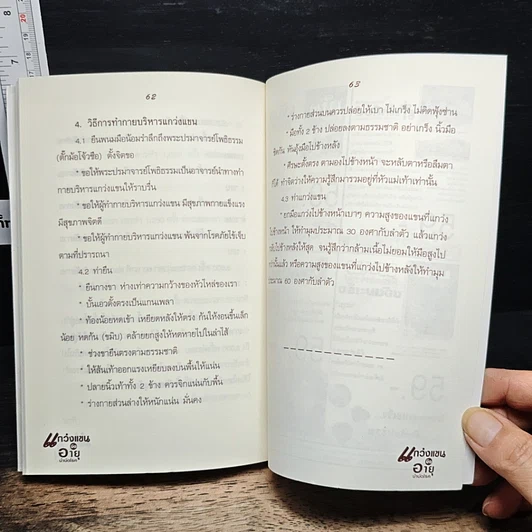 62
4. วิธีการทำกายบริหารแกว่งแขน
4.1 ยืนพนมมือน้อมรำลึกถึงพระปรมาจารย์โพธิธรรม
(ตั๊กม้อโจ้วซือ) ตั้งจิตขอ
* ขอให้พระปรมาจารย์โพธิธรรมเป็นอาจารย์นำทางทำ
กายบริหารแกว่งแขนให้ราบรื่น
* ขอให้ผู้ทำกายบริหารแกว่งแขน มีสุขภาพกายแข็งแรง
มีสุขภาพจิตดี
* ขอให้ผู้ทำกายบริหารแกว่งแขน พ้นจากโรคภัยไข้เจ็บ
ตามที่ปรารถนา
4.2 ท่ายืน
* ยืนกางขา ห่างเท่าความกว้างของหัวไหล่ของเรา
* บั้นเอวตั้งตรงเป็นแกนเพลา
* ท้องน้อยหดเข้า เหยียดหลังให้ตรง ก้นให้งอนขึ้นเล็ก
น้อย หดก้น (ขมิบ) คล้ายยกสูงให้หดหายไปในลำไส้
* ช่วงขายืนตรงตามธรรมชาติ
* ให้ส้นเท้าออกแรงเหยียบลงบนพื้นให้แน่น
* ปลายนิ้วเท้าทั้ง 2 ข้าง ควรจิกแน่นกับพื้น
* ร่างกายส่วนล่างให้หนักแน่น มั่นคง
แกว่งแขน
ยืด
อายุ
63
* ร่างกายส่วนบนควรปล่อยให้เบา ไม่เกร็ง ไม่คิดฟุ้งซ่าน
* มือทั้ง 2 ข้าง ปล่อยลงตามธรรมชาติ อย่าเกร็ง นิ้วมือ
ชิดกัน หันอุ้งมือไปข้างหลัง
* ศีรษะตั้งตรง ตามองไปข้างหน้า จะหลับตาหรือลืมตา
ก็ได้ ทำจิตว่างให้ความรู้สึกมารวมอยู่ที่หัวแม่เท้าเท่านั้น
4.3 ท่าแกว่งแขน
* ยกมือแกว่งไปข้างหน้าเบาๆ ความสูงของแขนที่แกว่ง
ไปข้างหน้า ให้ทำมุมประมาณ 30 องศากับลำตัว แล้วแกว่ง
กลับไปข้างหลังให้สุด จนรู้สึกว่ากล้ามเนื้อไม่ยอมให้มือสูงไป
กว่านั้นแล้ว หรือความสูงของแขนที่แกว่งไปข้างหลังให้ทำมุม
ประมาณ 60 องศากับลำตัว
แกว่งแขน
ยืด
อายุ